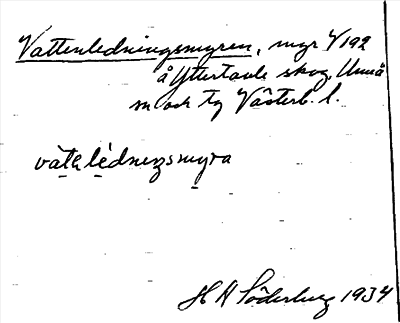 Vattenledningsmyren, myr 4/192
å Yttertavle skog, Umeå
m och tg Västerb. l.
vàtǝlédnıŋsmyra
H N Söderberg 1934